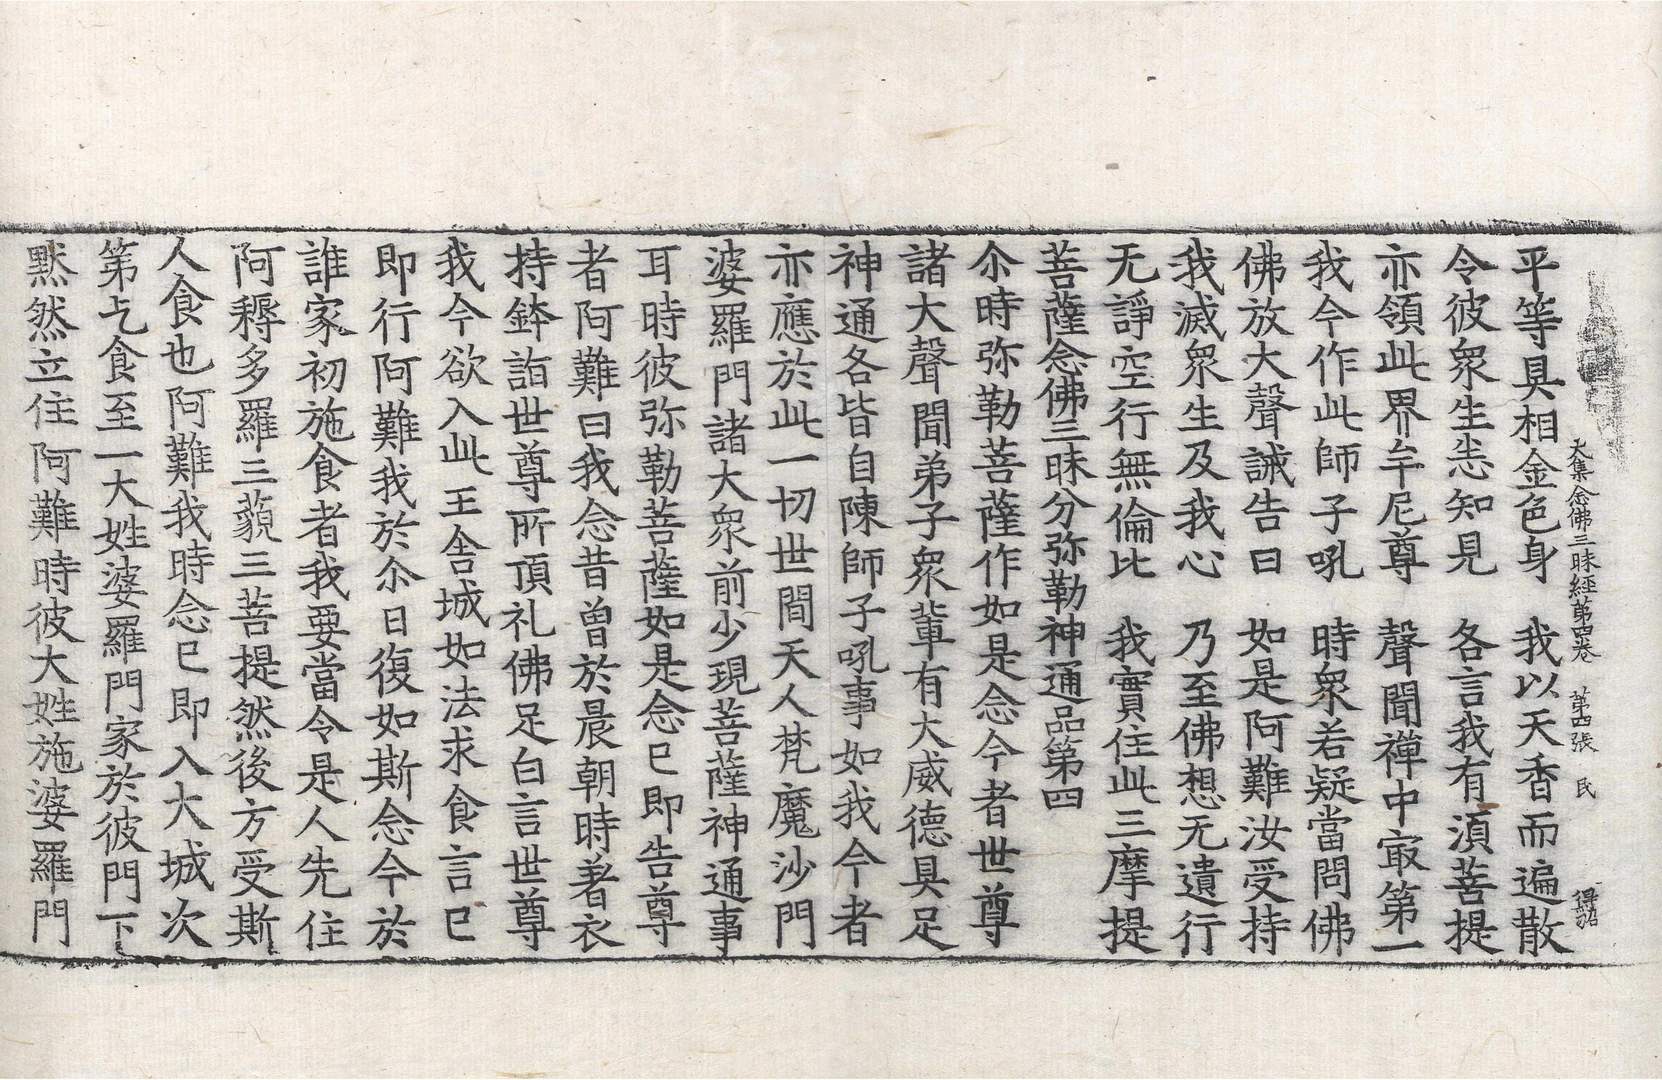 大集念佛三昧經第四卷　第四張　民　得招
平等具相金色身　我以天香而遍散
令彼衆生悉知見　各言我有湏菩提
亦領此界牟尼尊　聲聞禪中㝡第一
我今作此師子吼　時衆若疑當問佛
佛放大聲誡告曰　如是阿難汝受持
我滅衆生及我心　乃至佛想无遺行
无諍空行無倫比　我實住此三摩提
菩薩念佛三昧分弥勒神通品第四
尒時弥勒菩薩作如是念今者世尊
諸大聲聞弟子衆輩有大威德具足
神通各皆自陳師子吼事如我今者
亦應於此一切世間天人梵魔沙門
婆羅門諸大衆前少現菩薩神通事
耳時彼弥勒菩薩如是念已即告尊
者阿難曰我念昔曽於晨朝時著衣
持鉢詣世尊所頂礼佛足白言世尊
我今欲入此王舍城如法求食言已
即行阿難我於尒日復如斯念今於
誰家初施食者我要當令是人先住
阿耨多羅三藐三菩提然後方受斯
人食也阿難我時念已即入大城次
第乞食至一大姓婆羅門家於彼門下
黙然立住阿難時彼大姓施婆羅門